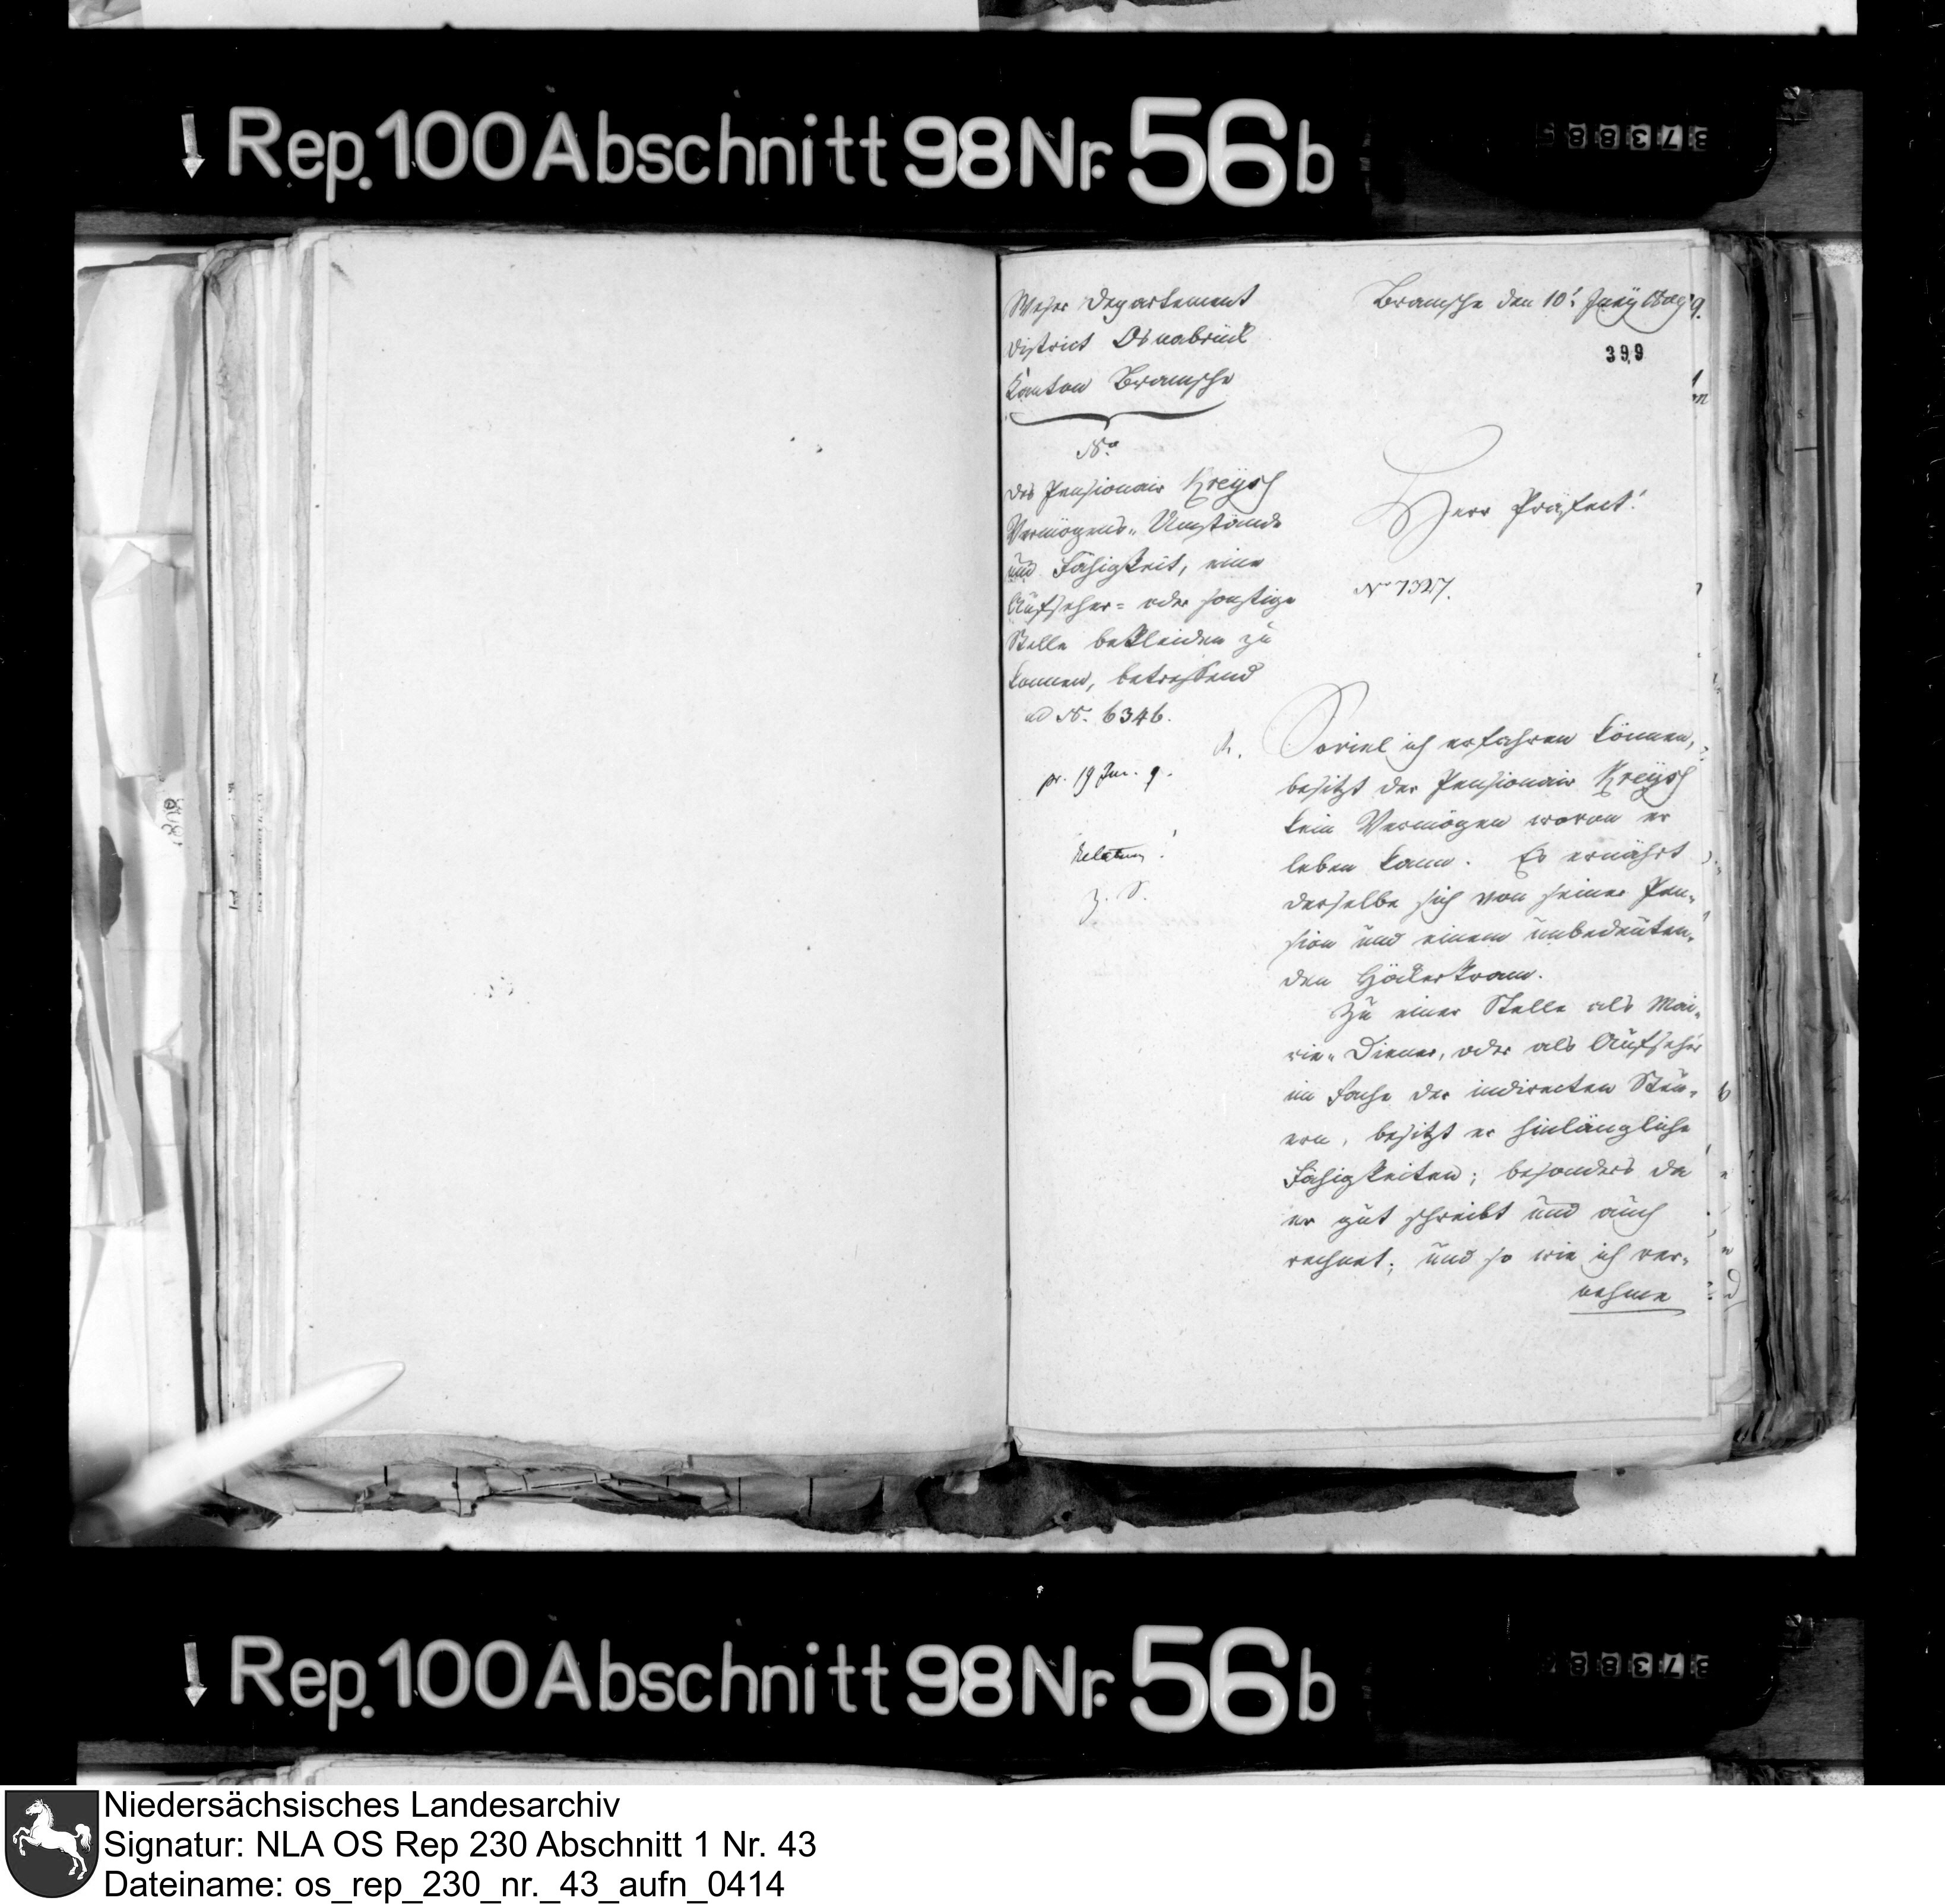 Rep. 100 Abschnitt 98 Nr. 56 b
Weser Departement
District Osnabrück
Canton Bramsche
No
Bramsche den 10t Juny 1809.
399
des Pensionair Kreysch
Vermögens- Umstände
und Fähigkeit, eine
Aufseher= oder sonstige
Stelle bekleiden zu
können, betreffend
ad N. 6346.
pr. 19 Jun. 9.
Relatum!
Z. S.
Herr Präfect!
No 7327.
Soviel ich erfahren können,
besitzt der Pensionair Kreysch
kein Vermögen wovon er
leben kann. Es ernährt
derselbe sich von seiner Pen-
sion und einem unbedeuten-
den Höckerkram.
Zu einer Stelle als Mai-
rie- Diener, oder als Aufseher
im Fache der indirecten Steu-
ern, besitzt er hinlängliche
Fähigkeiten; besonders da
er gut schreibt und auch
rechnet; und so wie ich ver-
nehme
Rep. 100 Abschnitt 98 Nr. 56 b
Niedersächsisches Landesarchiv
Signatur: NLA OS Rep 230 Abschnitt 1 Nr. 43
Dateiname: os_rep_230_nr._43_aufn_0414